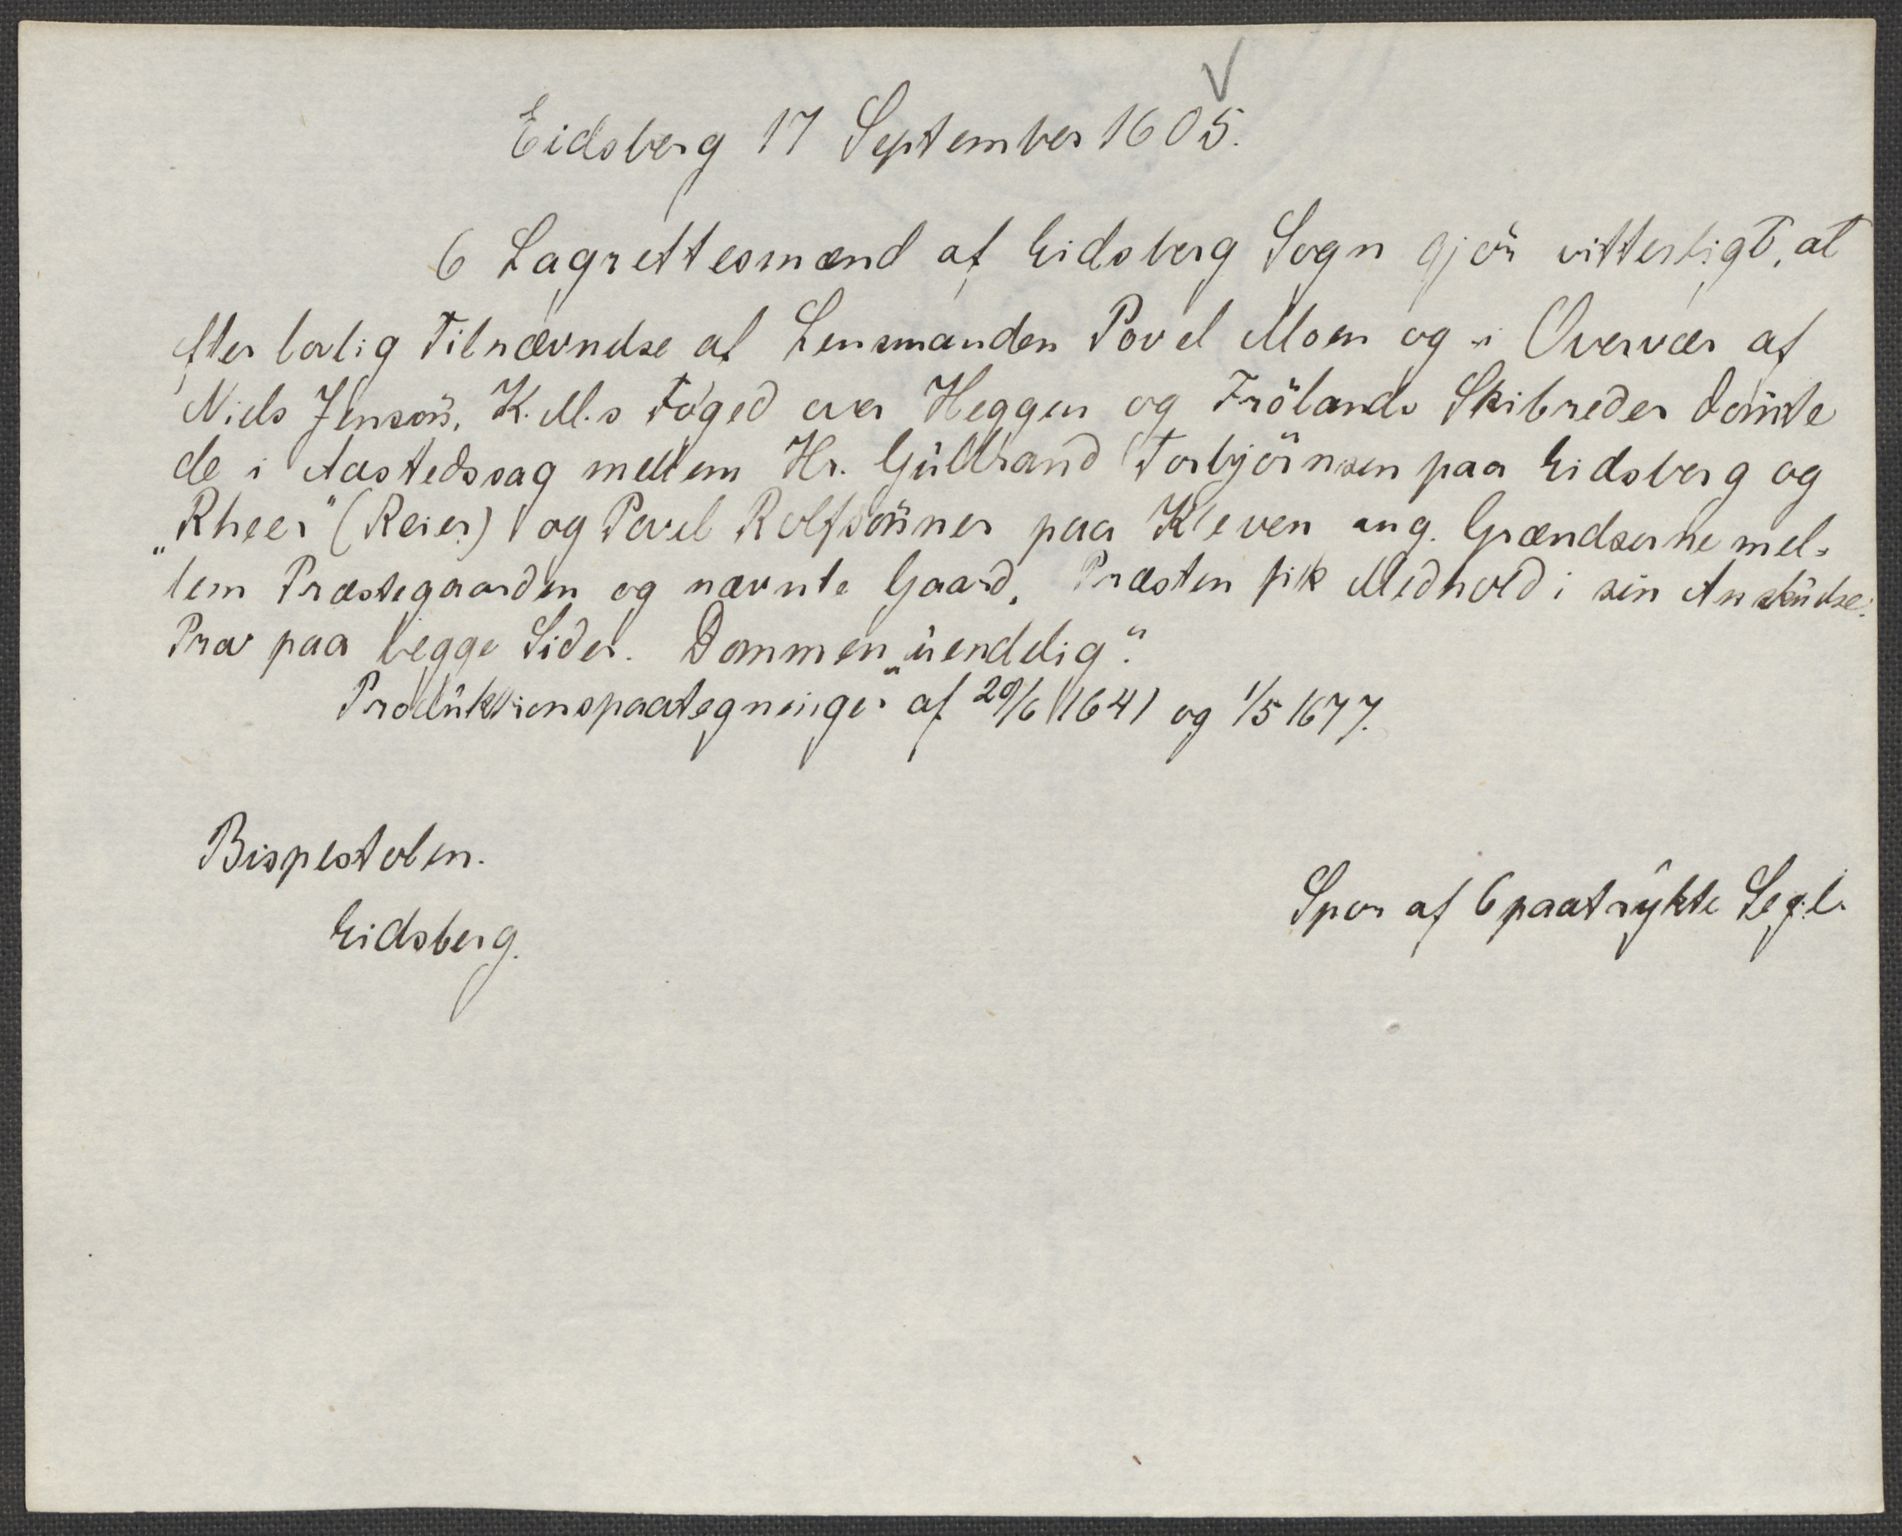 Eidsberg 17 September 1605.
6 Lagrettesmænd af Eidsberg Sogn gjör vitterligt, at
efter lovlig Tilnævnelse af Lensmanden Povel Moen og i Overvær af
Niels Jensön, K. M.s Foged over Heggen og Frölands Skibreder dömte
de i Aastedssag mellem Hr. Gulbrand Torbjörnsen paa Eidsberg og
"Rheer" (Reier) og Povel Rolfsönner paa Kleven ang. Grændserne mel-
lem Præstegaarden og nævnte Gaard. Præsten fik Medhold i sin Anskuelse.
Prov paa begge Sider. Dommen "uendelig".
Produktionspaategninger af 20/6 1641 og 1/5 1677.
Bispestolen.
Eidsberg.
Spor af 6 paatrykte Segl.